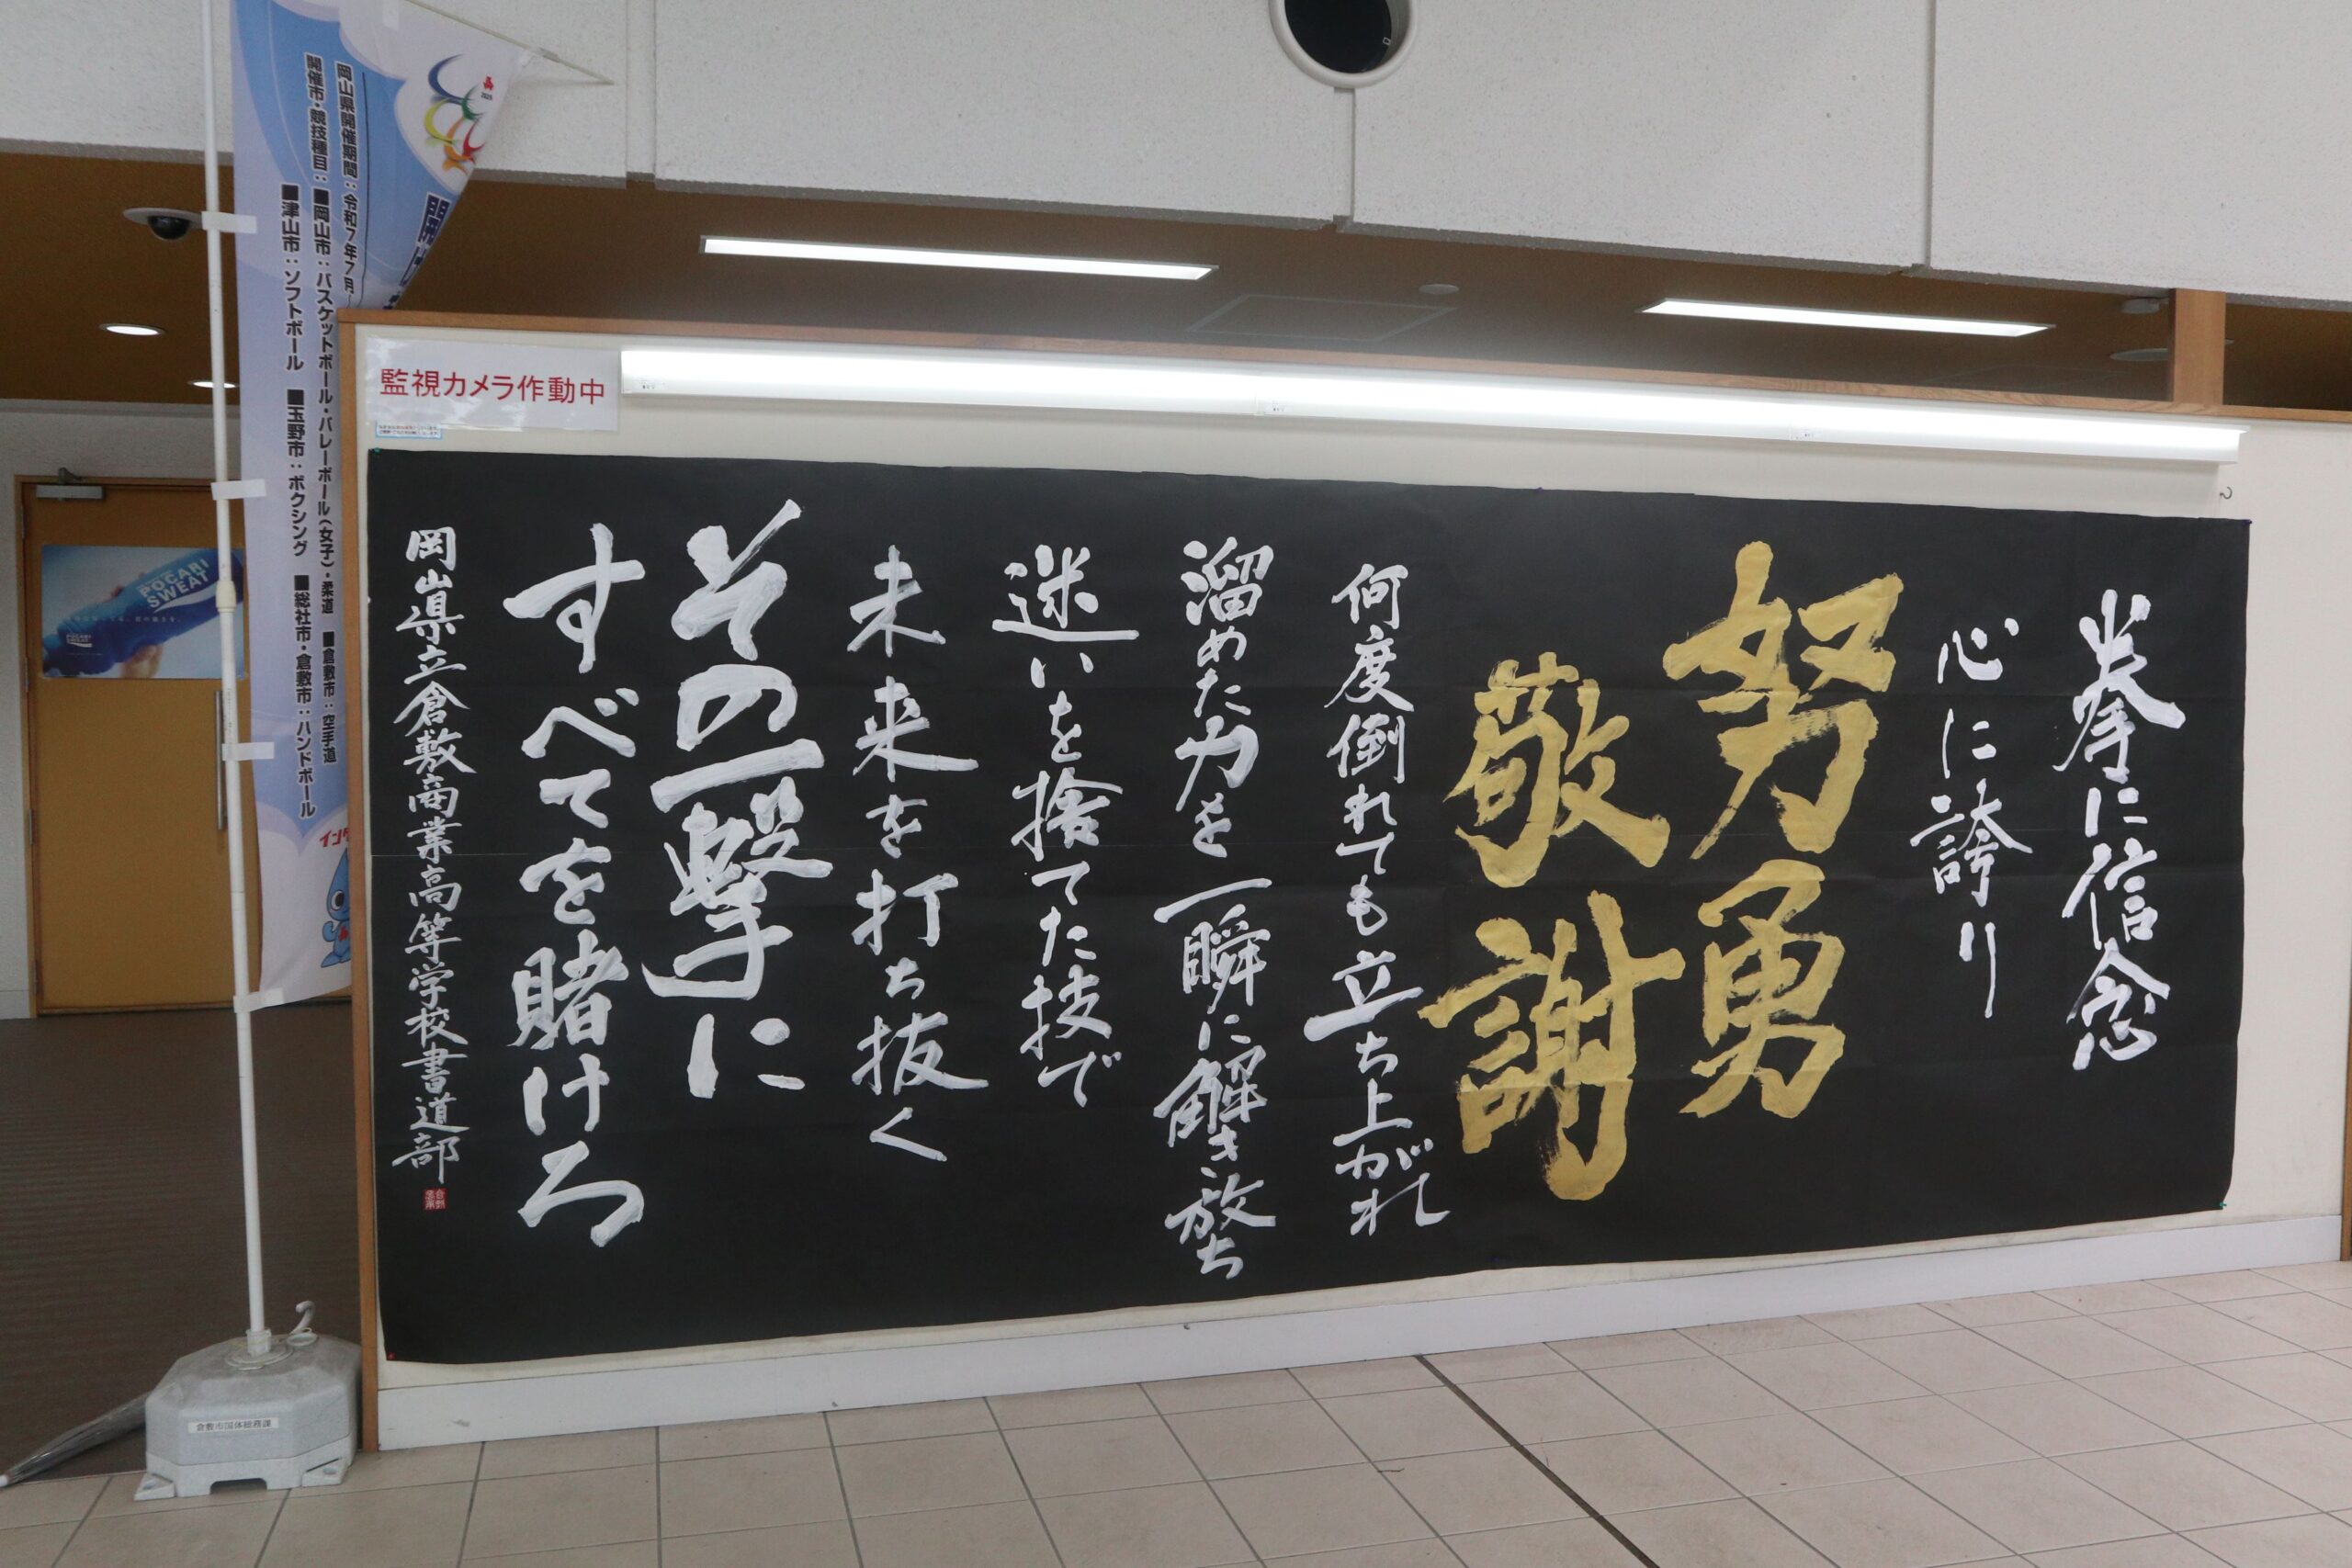 拳に信念
心に誇り
努勇
敬謝
何度倒れても立ち上がれ
溜めた力を一瞬に解き放ち
迷いを捨てた技で
未来を打ち抜く
その一撃に
すべてを賭けろ
岡山県立倉敷商業高等学校書道部
監視カメラ作動中
岡山県開催期間：令和7年7月
開催市・競技種目：■岡山市：バスケットボール・バレーボール（女子）・柔道 ■倉敷市：空手道
■津山市：ソフトボール ■玉野市：ボクシング ■総社市・倉敷市：ハンドボール
POCARI
SWEAT
倉敷市国体総務課